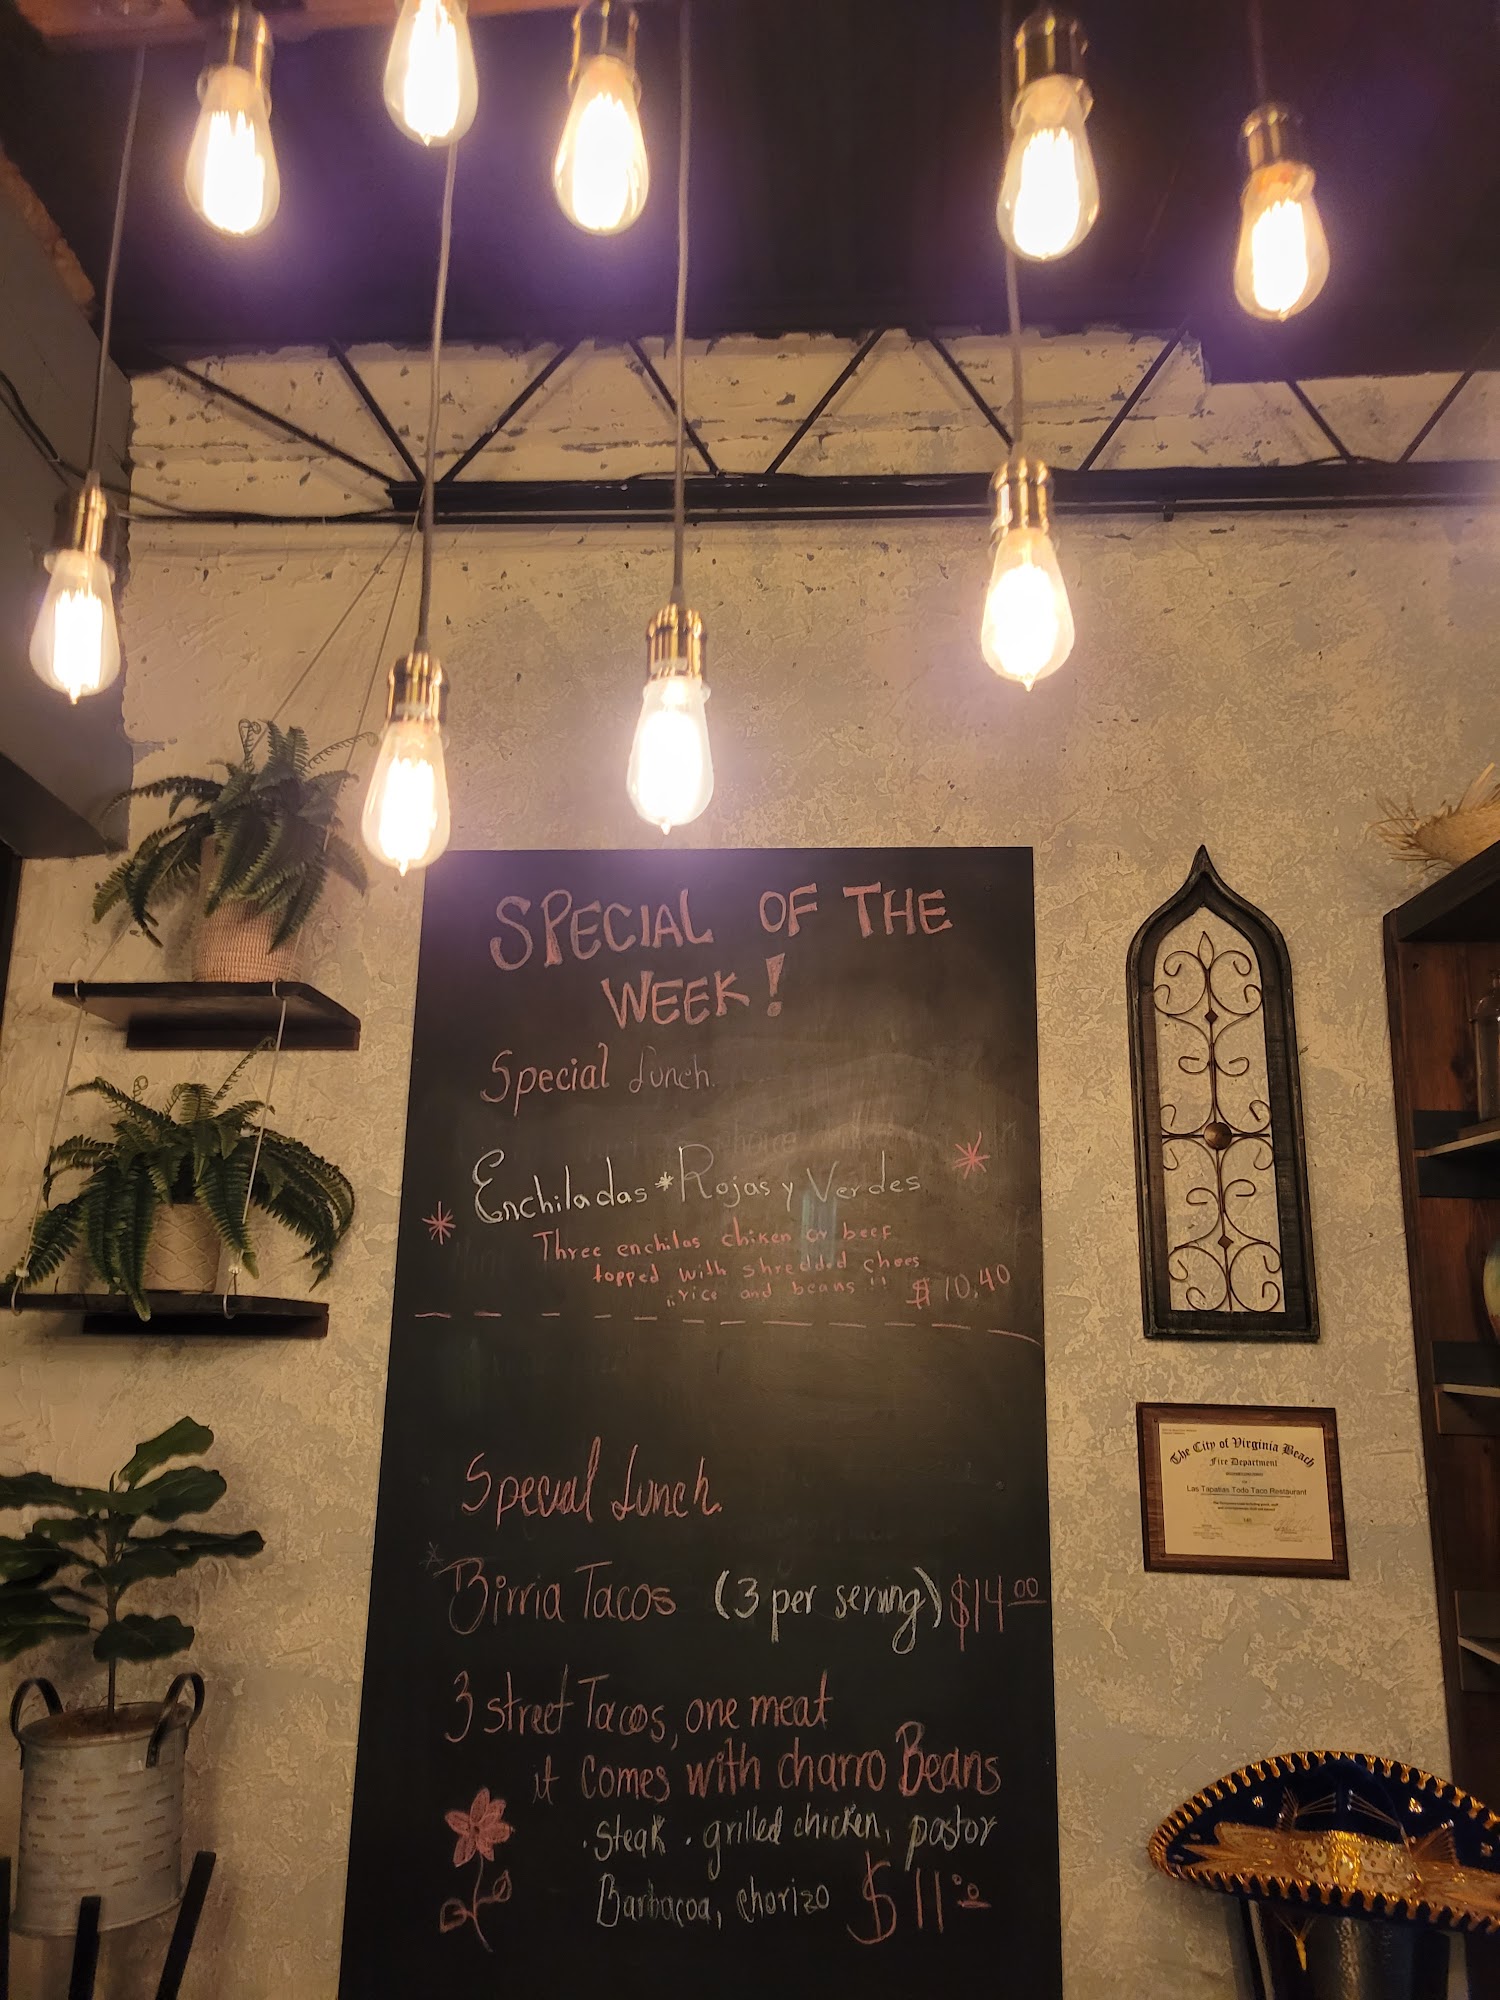 SPECIAL OF THE
WEEK!
Special Lunch.
Enchiladas * Rojas y Verdes
Three enchilas chiken or beef
topped with shredded chees
rice and beans!! $10.40
Special Lunch.
Birria Tacos (3 per serving) $14.00
3 street Tacos, one meat
it comes with charro Beans
. Steak . grilled chicken, pastor
Barbacoa, chorizo $11.00
The City of Virginia Beach
Fire Department
Las Tapatias Todo Taco Restaurant